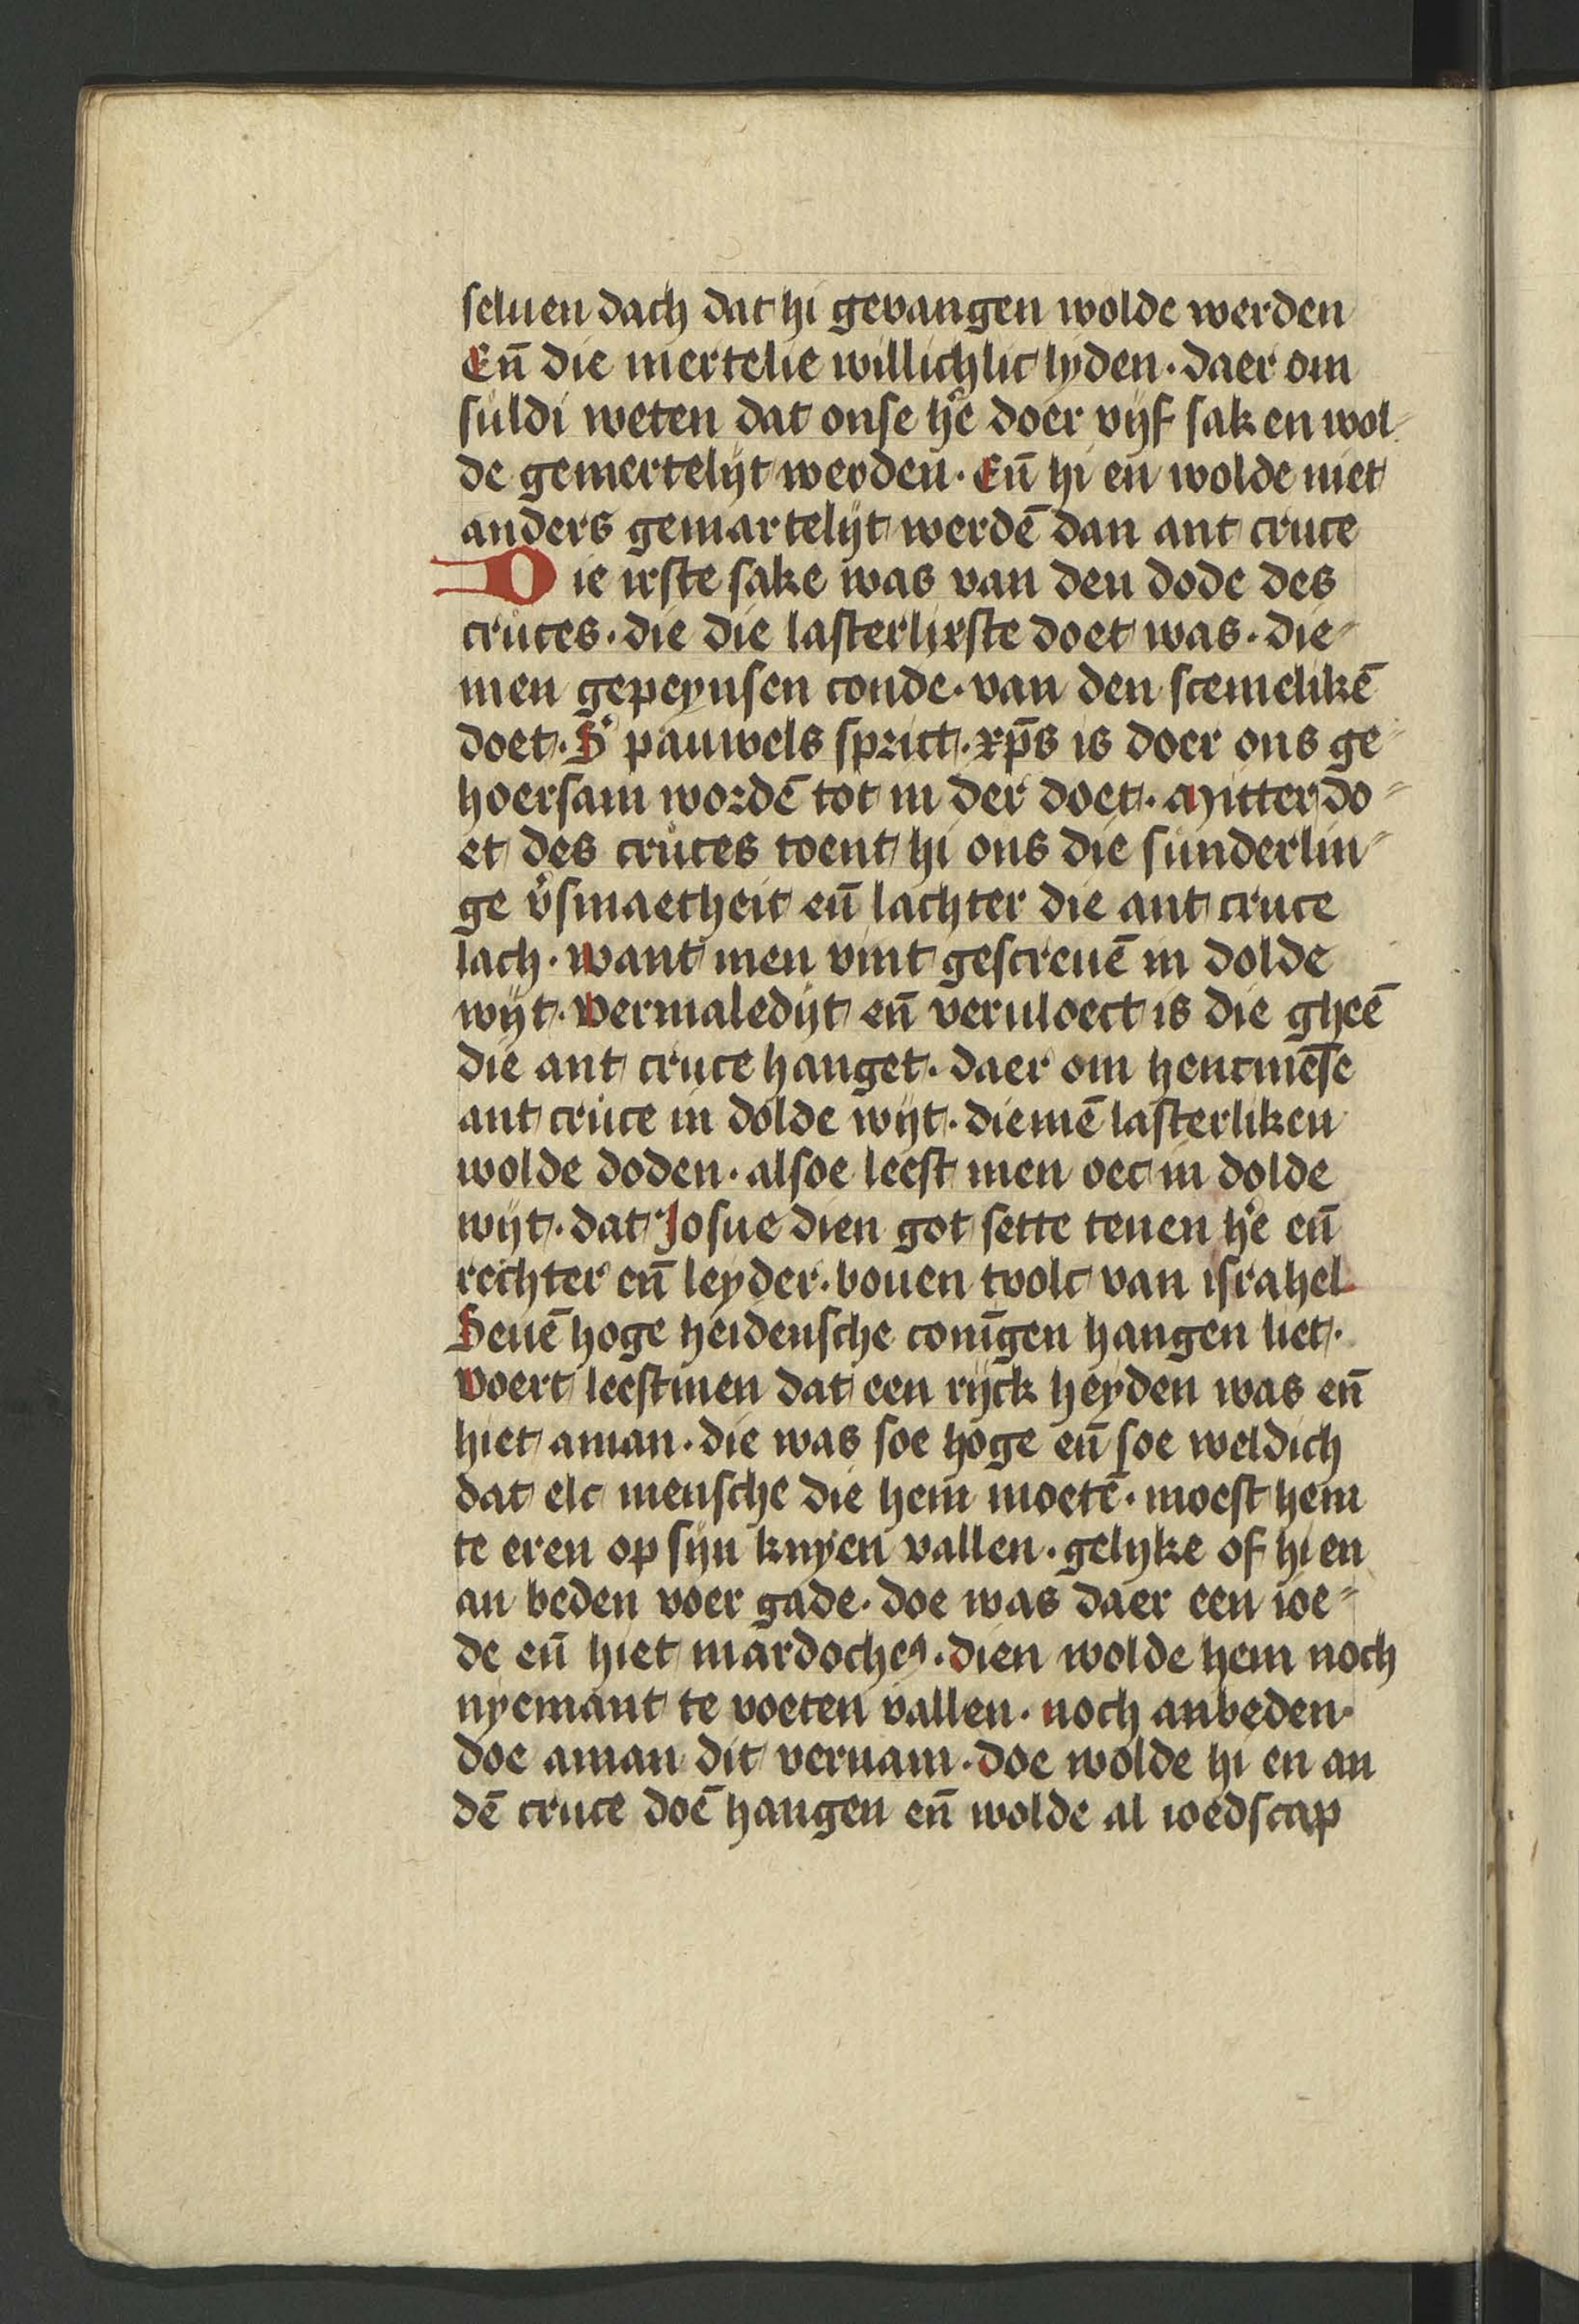 seluen dach dat hi gevangen wolde werden
En̄ die mertelie willichlic lijden · daer om
suldi weten dat onse hē doer vijf saken wol-
de gemertelijt werden · En̄ hi en wolde niet
anders gemartelijt werdē dan ant cruce
Die irste sake was van den dode des
cruces · die die lasterlixste doet was · die-
men gepeynsen conde · van den scemelikē
doet · S' pauwels sprict · xp̄s is doer ons ge-
hoersam wordē tot in der doet · Mitter do-
et des cruces toent hi ons die sunderlin-
ge v̾smaetheit en̄ lachter die ant cruce
lach · want men vint gescreuē in dolde
wijt · Vermaledijt en̄ veruloect is die gheē
die ant cruce hanget · daer om hencmēse
ant cruce in dolde wijt · diemē lasterliken
wolde doden · alsoe leest men oec in dolde
wijt · dat Josue dien got sette teuen hē en̄
rechter en̄ leyder · bouen tvolc van israhel
Seuē hoge heidensche conīgen hangen liet ·
Voert leestmen dat een rijck heyden was en̄
hiet aman · die was soe hoge en̄ soe weldich
dat elc mensche die hem moetē · moest hem
te eren op sijn knyen vallen · gelijke of hi en
an beden voer gade · doe was daer een ioe-
de en̄ hiet mardocheꝯ · dien wolde hem noch
nyemant te voeten vallen · noch anbeden ·
doe aman dit vernam · doe wolde hi en an
dē cruce doē hangen en̄ wolde al ioedscap